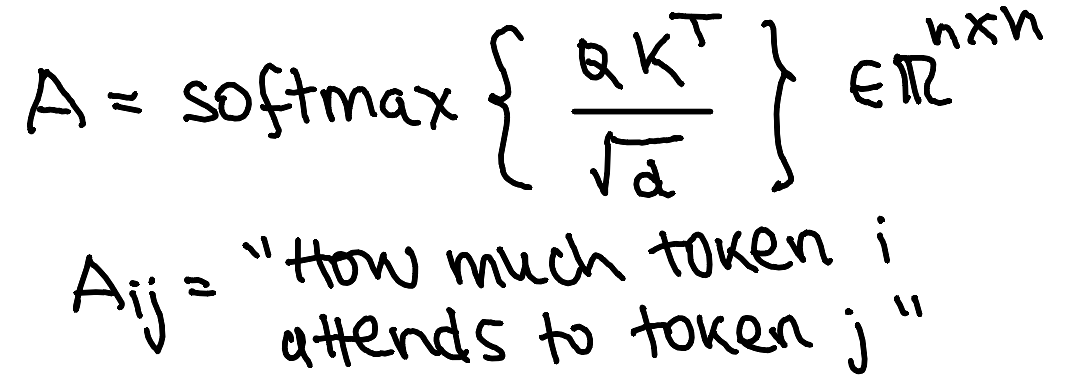 A = softmax { QK^T / √d } ∈ ℝ^{n×n}
A_{ij} = "How much token i
attends to token j"